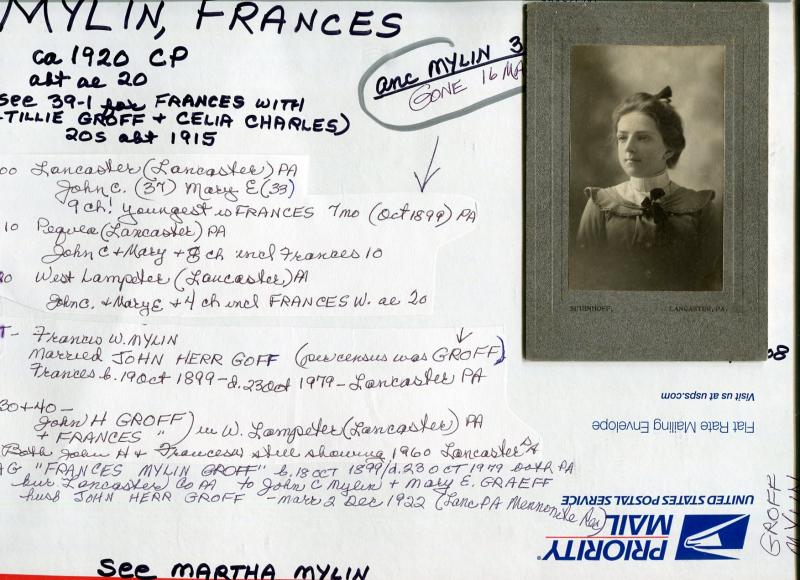 MYLIN, FRANCES
ca 1920 CP
abt ae 20
see 39-1 for FRANCES WITH
TILLIE GROFF + CELIA CHARLES)
20s abt 1915
anc MYLIN 3
GONE 16 MA
00 Lancaster (Lancaster) PA
John C. (37) Mary E (33)
9 ch! youngest is FRANCES 7mo (Oct 1899) PA
10 Pequea (Lancaster) PA
John C + Mary + 8 ch incl Frances 10
20 West Lampeter (Lancaster) PA
John C. + Mary E + 4 ch incl FRANCES W. ae 20
T- Francis W. MYLIN
Married JOHN HERR GOFF (per census was GROFF)
Frances b. 19 Oct 1899 - d. 23 Oct 1979 - Lancaster PA
30+40 -
John H GROFF) in W. Lampeter (Lancaster) PA
+ FRANCES "
Both John H + Frances still showing 1960 Lancaster PA
AG "FRANCES MYLIN GROFF" b. 18 OCT 1899/d. 23 OCT 1979 both PA
bur Lancaster Co PA to John C Mylin + Mary E. GRAEFF
husb JOHN HERR GROFF - marr 2 Dec 1922 (Lanc PA Mennonite
See MARTHA MYLIN
SCHINHOFF, LANCASTER, PA.
Visit us at usps.com
Flat Rate Mailing Envelope
UNITED STATES POSTAL SERVICE
PRIORITY
MAIL
GROFF
MYLIN